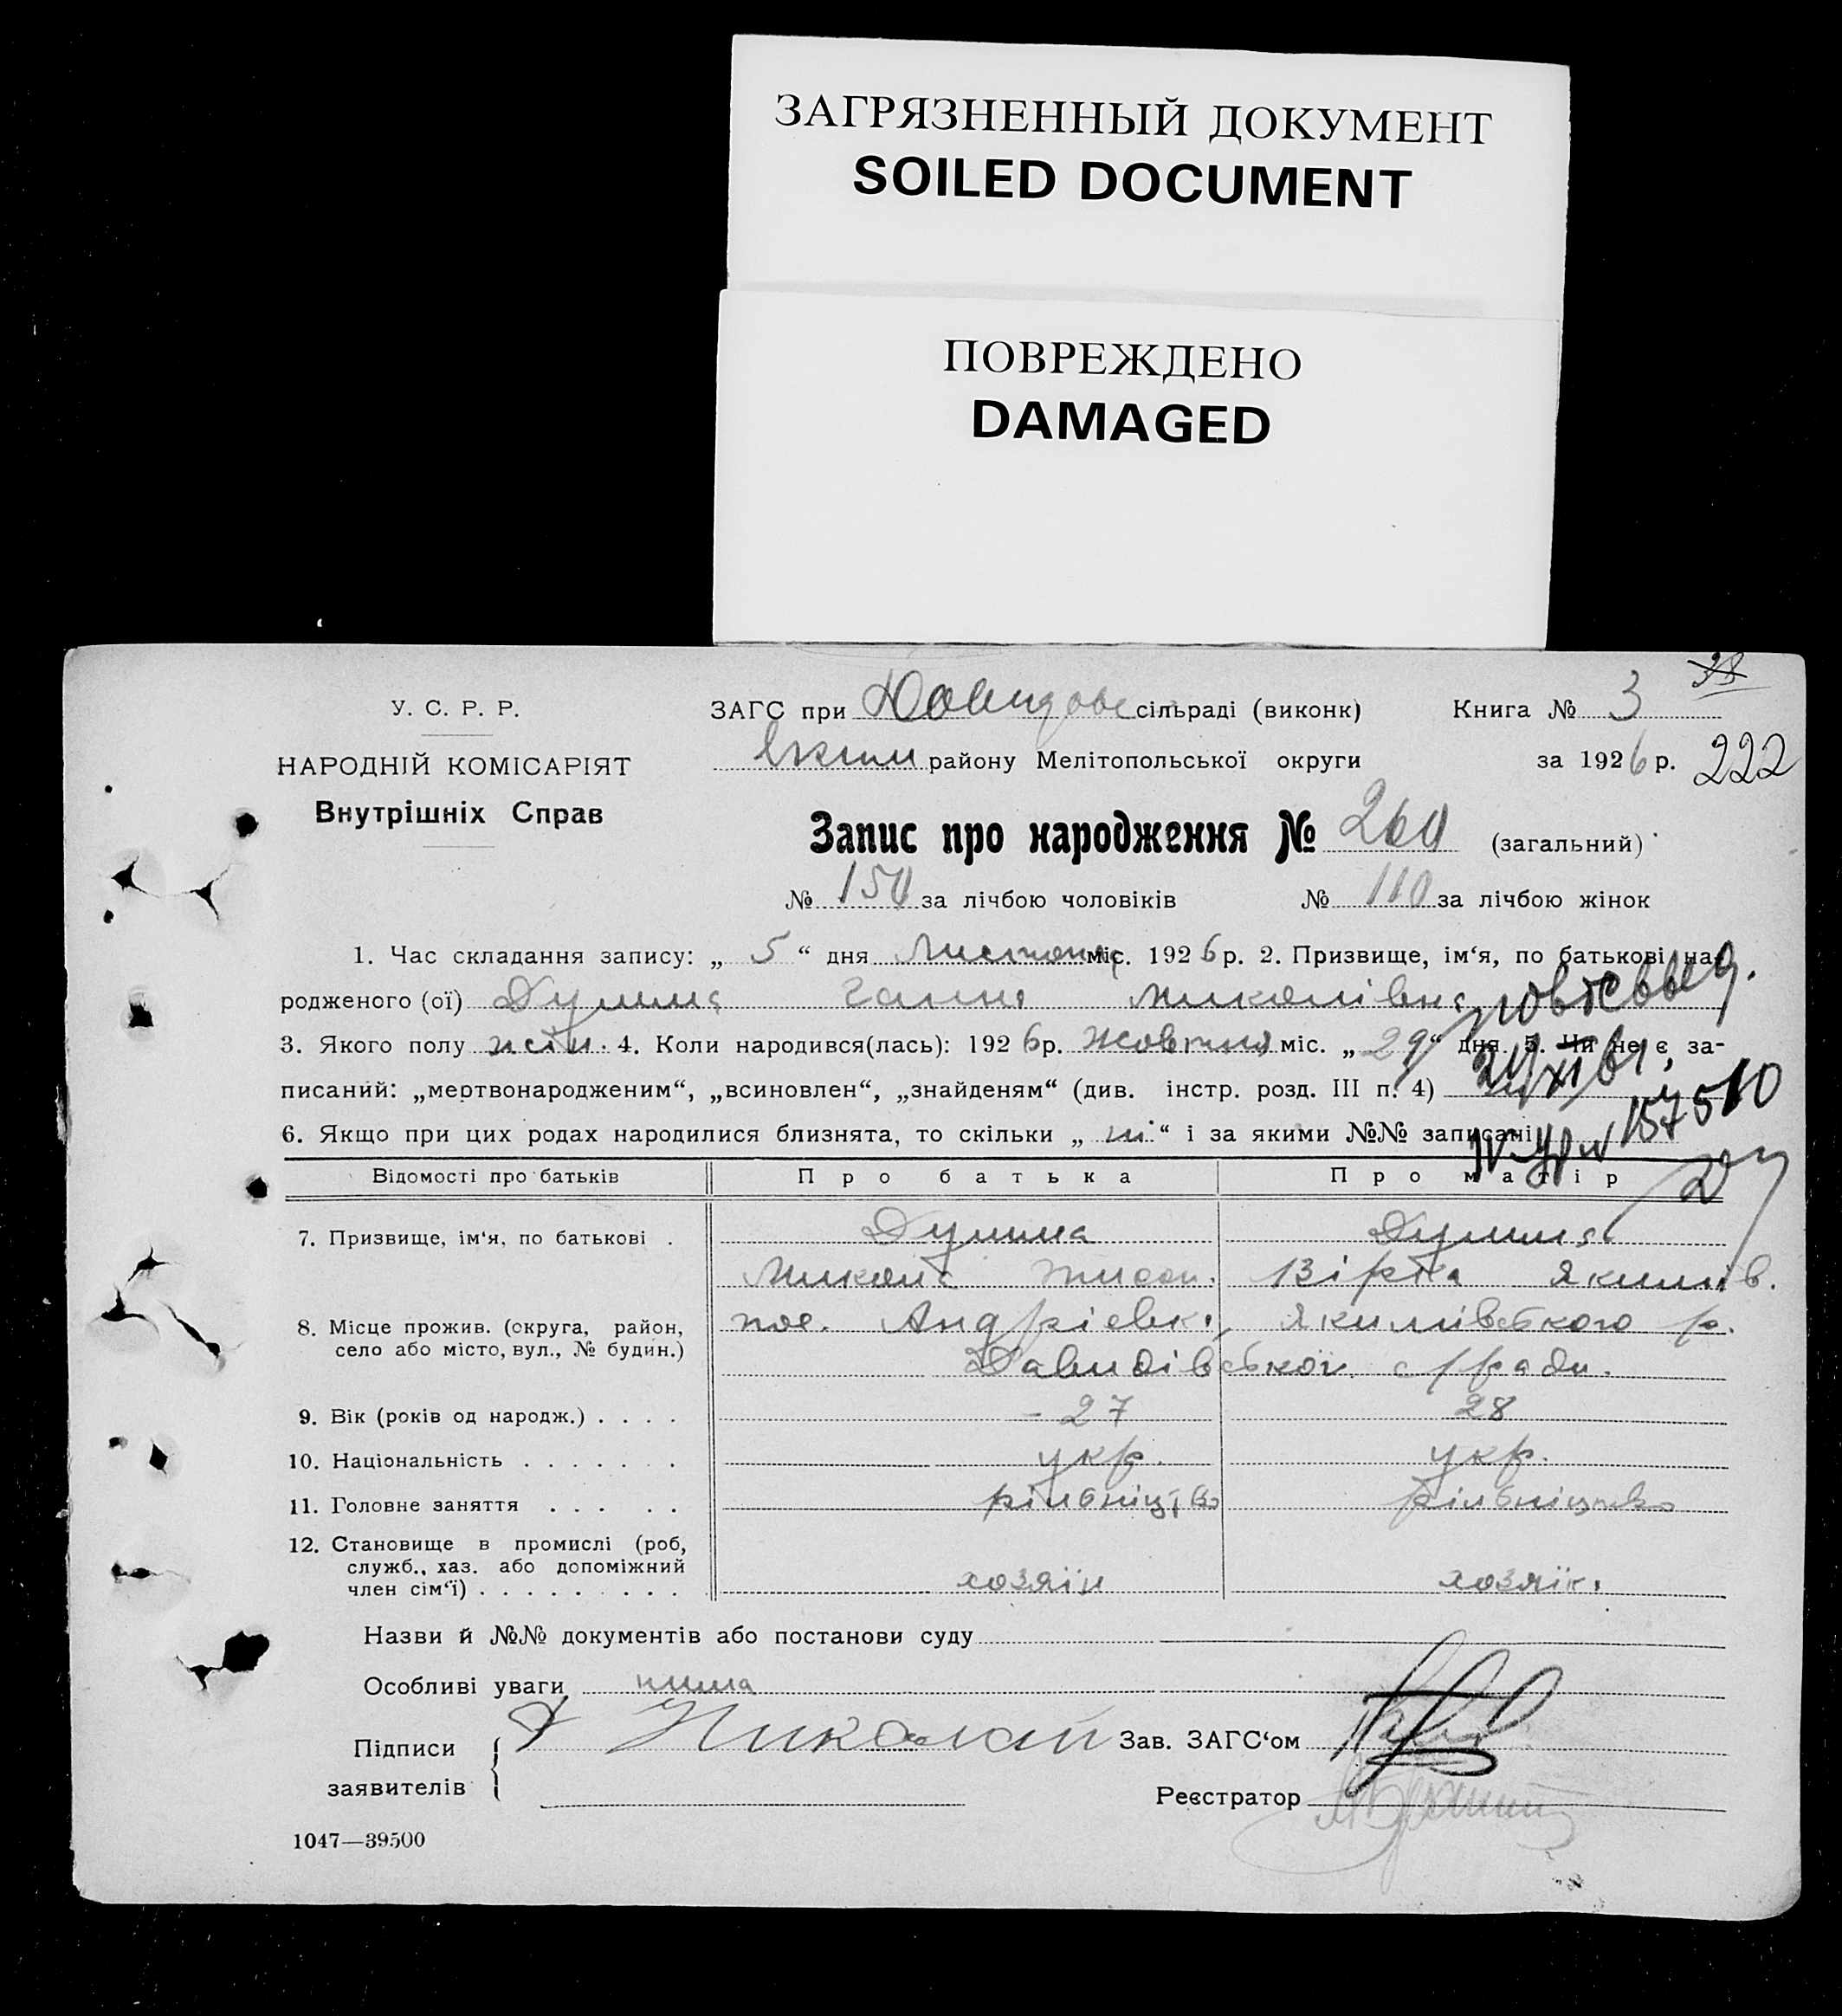 ЗАГРЯЗНЕННЫЙ ДОКУМЕНТ
SOILED DOCUMENT
ПОВРЕЖДЕНО
DAMAGED
У. С. Р. Р.
НАРОДНІЙ КОМІСАРІЯТ
Внутрішніх Справ
ЗАГС при сільраді (виконк)
Книга № 3
Яким району Мелітопольської округи
за 1926 р.
222
Запис про народження № 260 (загальний)
№ 150 за лічбою чоловіків № 110 за лічбою жінок
1. Час складання запису: „ 5 “ дня Листопад міс. 1926 р. 2. Призвище, ім‘я, по батькові на-
родженого (ої) Ганна Миколівна
повт выд.
3. Якого полу жін. 4. Коли народився(лась): 1926 р. Жовтня міс. „ 29 “ дня. 5. Чи не є, за-
писаний: „мертвонародженим“, „всиновлен“, „знайденям“ (див. інстр. розд. III п. 4)
6. Якщо при цих родах народилися близнята, то скільки „ ні “ і за якими №№ записані
157510
Відомості про батьків
Про батька
Про матір
7. Призвище, ім‘я, по батькові .
Микола
Вірка Якимів.
8. Місце прожив. (округа, район,
село або місто, вул., № будин.)
пос. Андрієвка, Якимівського р.
Давидівської с/ради.
9. Вік (років од народж.) . . . .
27
28
10. Національність . . . . . . .
укр.
укр.
11. Головне заняття . . . . .
рільництво
рільництво
12. Становище в промислі (роб,
служб., хаз. або допоміжний
член сім‘ї) . . . . . . . . .
хозяїн
хозяїк.
Назви й №№ документів або постанови суду
Особливі уваги нима
Підписи
заявителів
Николай
Зав. ЗАГС‘ом
Реєстратор
1047—39500